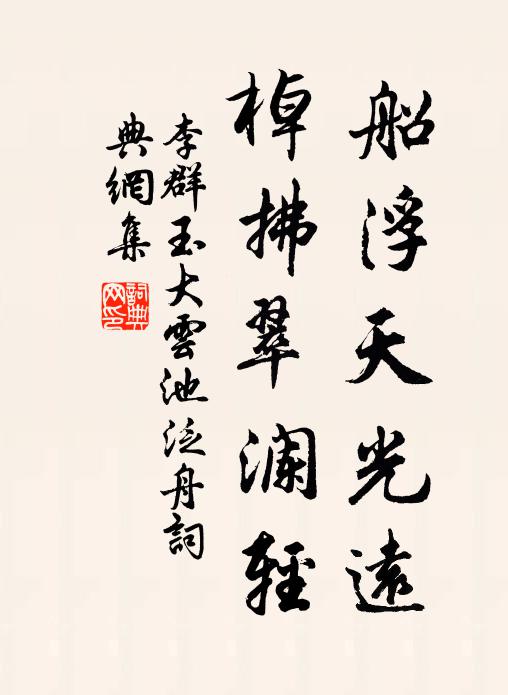 船浮天光遠
棹拂翠瀾輕
李群玉大雲池泛舟詞
典網集
詞典
网印